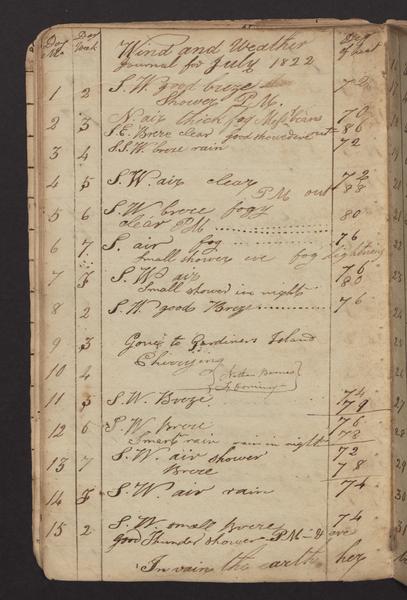 Day Mo. Day Week Wind and Weather Deg of heat
Journal for July 1822
1 2 S. W. good breze 72
Shower P.M.
2 3 N. air thick fog 70
S.E. Breze clear good 86
3 4 S.S.W. breze rain 72
4 5 S. W. air clear 72
PM out 88
5 6 S. W breze fogy
clear PM 80
6 7 S. air fog 76
Small shower eve fog lightning
7 S. W air 76
Small shower in night 80
8 2 S. W good Breze 76
9 3 Gone to Gardiners Island
10 4
11 5 S. W. Breze 74
79
12 6 S. W Breze 76
Smart rain rain in night 78
13 7 S. W. air shower 72
Breze 78
14 S. W. air rain 74
15 2 S. W. small Breze 74
good Thunder shower P.M. & eve
In vain the earth her